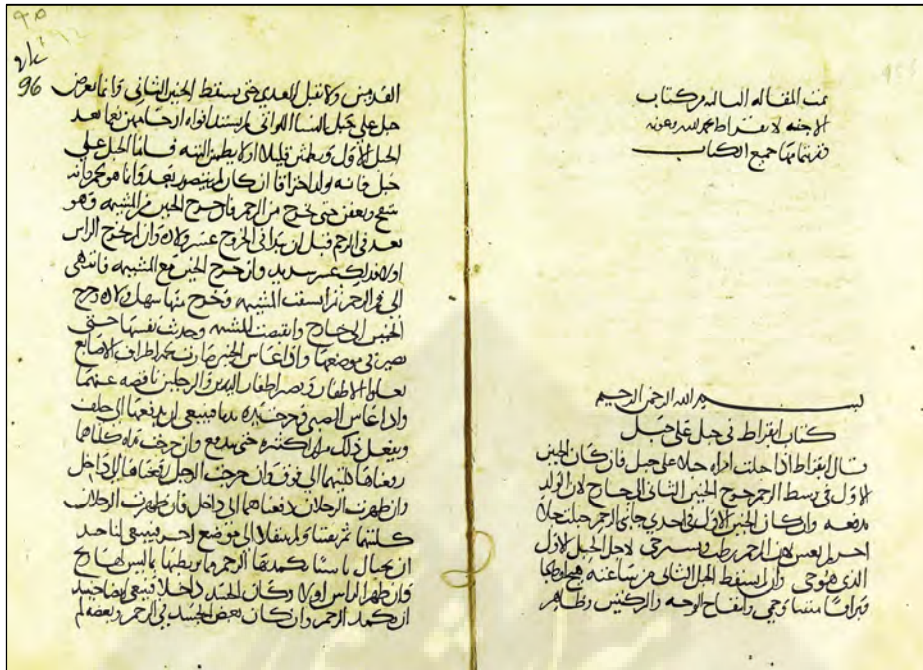 تمت المقاله الثالثه من كتاب
الاجنه لابقراط بحمد لله وعونه
وبتمامها جميع الكتاب
بسم الله الرحمن الرحيم
كتاب ابقراط في حبل على حبل
قال ابقراط اذا حبلت امراه حبلا على حبل فان كان الجنين
الاول في وسط الرحم خرج الجنين الثاني الى خارج لان الولد
يدفعه وان كان الجنين الاول في احدي جانبي الرحم حبلت حبلا
اخر لان الرحم رطب الحبل الاول
الذي هو حي وان لم يسقط الحبل الثاني من ساعته
وانتفاخ الوجه والركبتين
95
96
القدمين ولا تقبل الغدي حتى يسقط الجنين الثاني وانما يعرض
حبل على حبل النسا اللواتي لم يستد افواه ارحامهن نعما بعد
الحبل الاول ويطمثن قليلا او لا يطمثن البته فاما الحبل على
حبل فانه ان كان لم يتصور بعد وانما هو لحم فانه
ويعفن حتى يخرج من الرحم فان خرج الجنين من المشيمه وهو
بعد في الرحم قبل ان يبدا في الخروج عسر ولاده وان لم يخرج الراس
اولا فذلك عسر شديد وان خرج الجنين مع المشيمه فانتهى
الى فم الرحم ثم انشقت المشيمه وخرج منها سهل ولاده وخرج
الجنين الى خارج وانقبضت المشيمه وجذبت نفسها حتى
تصير في موضعها واذا عاش الجنين صارت لحم اطراف الاصابع
تعلوا الاظفار وتصير اظفار اليدين والرجلين ناقصه عنهما
واذا عاش الصبي وخرجت يده فينبغي ان يدفعها الى خلف
ويفعل ذلك مرارا كثيره حتى يندفع وان خرجت يداه كلتاهما
دفعناهما كلتيهما الى فوق وان خرجت الرجل دفعناها الى داخل
وان ظهرت الرجلان دفعناهما الى داخل فان ظهرت الرجلان
كلتيهما ثم بقيتا ولم ينتقلا الى موضع اخر فينبغي لنا حينيذ
ان نحتال باشيا نكمد بها الرحم ونرطبها
وان ظهر الراس اولا وكان الجسد داخلا فينبغي ايضا حينيذ
ان نكمد الرحم وان كان بعض الجسد في الرحم وبعضه لم